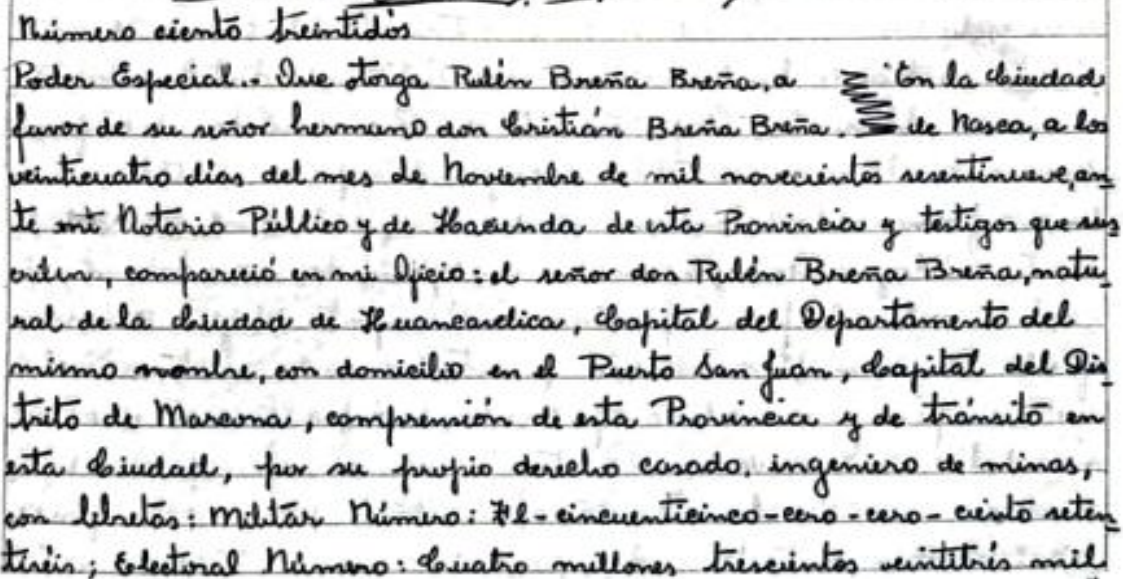 Número ciento treintidós
Poder Especial.- Que otorga Rubén Breña Breña, a En la Ciudad
favor de su señor hermano don Cristián Breña Breña. de Nasca, a los
veinticuatro días del mes de Noviembre de mil novecientos sesentinueve, an
te mí Notario Público y de Hacienda de esta Provincia y testigos que sus
criben, compareció en mi Oficio: el señor don Rubén Breña Breña, natu
ral de la Ciudad de Huancavelica, Capital del Departamento del
mismo nombre, con domicilio en el Puerto San Juan, Capital del Dis
trito de Marcona, comprensión de esta Provincia y de tránsito en
esta Ciudad, por su propio derecho casado, ingeniero de minas,
con libretas: Militar Número: -cincuenticinco-cero-cero-ciento seten
; Electoral Número: Cuatro millones trescientos veintitrés mil